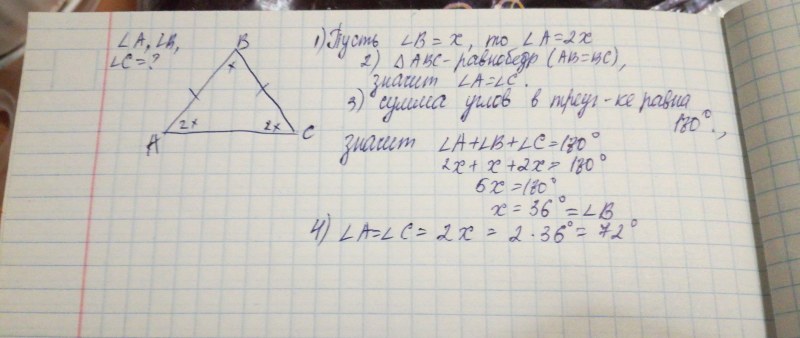 ∠A, ∠B,
∠C = ?
B
x
A
2x
2x
C
1) Пусть ∠B = x, то ∠A = 2x
2) △ABC - равнобедр (AB = BC),
значит ∠A = ∠C.
3) сумма углов в треуг-ке равна
180°.,
значит ∠A + ∠B + ∠C = 180°
2x + x + 2x = 180°
5x = 180°
x = 36° = ∠B
4) ∠A = ∠C = 2x = 2 · 36° = 72°